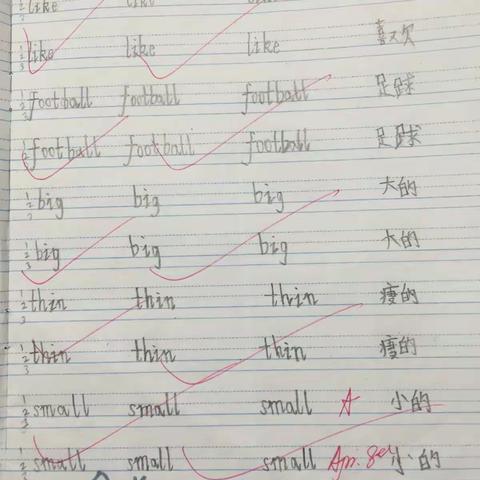 like like
like like like 喜欢
football football football 足球
football football football 足球
big big big 大的
big big big 大的
thin thin thin 瘦的
thin thin thin 瘦的
small small small A 小的
small small small 小的